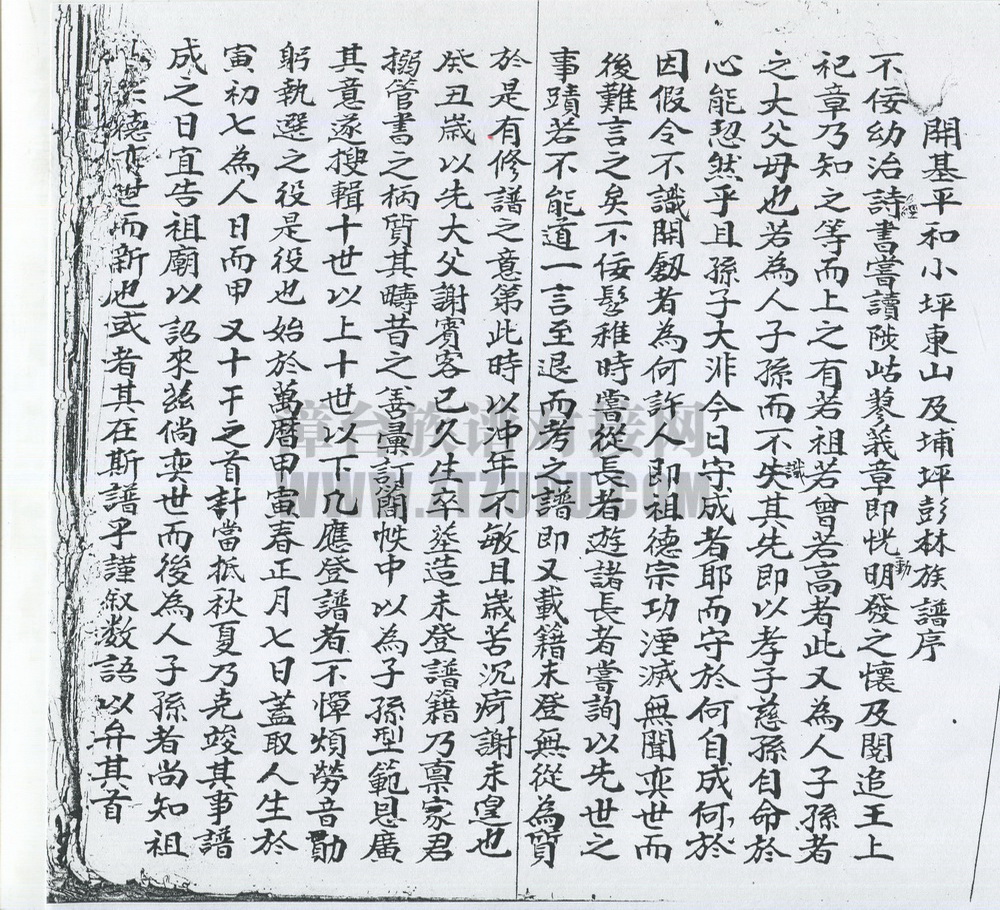 開基平和小坪東山及埔坪彭林族譜序
不佞幼治詩經書嘗讀陟岵蓼莪章即恍動明發之懷及閱追王上
祀章乃知之等而上之有若祖若曾若高者此又為人子孫者
之大父母也若為人子孫而不識失其先即以孝子慈孫自命於
心能恝然乎且孫子大非今日守成者耶而守於何自成何於
因假令不識開創者為何許人即祖德宗功湮滅無聞奕世而
後難言之矣不佞髫稚時嘗從長者遊諸長者嘗詢以先世之
事蹟若不能道一言至退而考之譜即又載籍未登無從為質
於是有修譜之意第此時以冲年不敏且歲苦沉疴謝未遑也
癸丑歲以先大父謝賓客已久生卒塋造未登譜籍乃禀家君
搦管書之柄質其疇昔之善彙訂簡帙中以為子孫型範恩廣
其意遂搜輯十世以上十世以下凡應登譜者不憚煩勞音勩
躬執選之役是役也始於萬曆甲寅春正月七日蓋取人生於
寅初七為人日而甲又十干之首計當抵秋夏乃克竣其事譜
成之日宜告祖廟以詔來茲倘奕世而後為人子孫者尚知祖
德奕世而新也或者其在斯譜乎謹叙数語以弁其首
漳台族谱对接网
WWW.ZTZUPU.COM